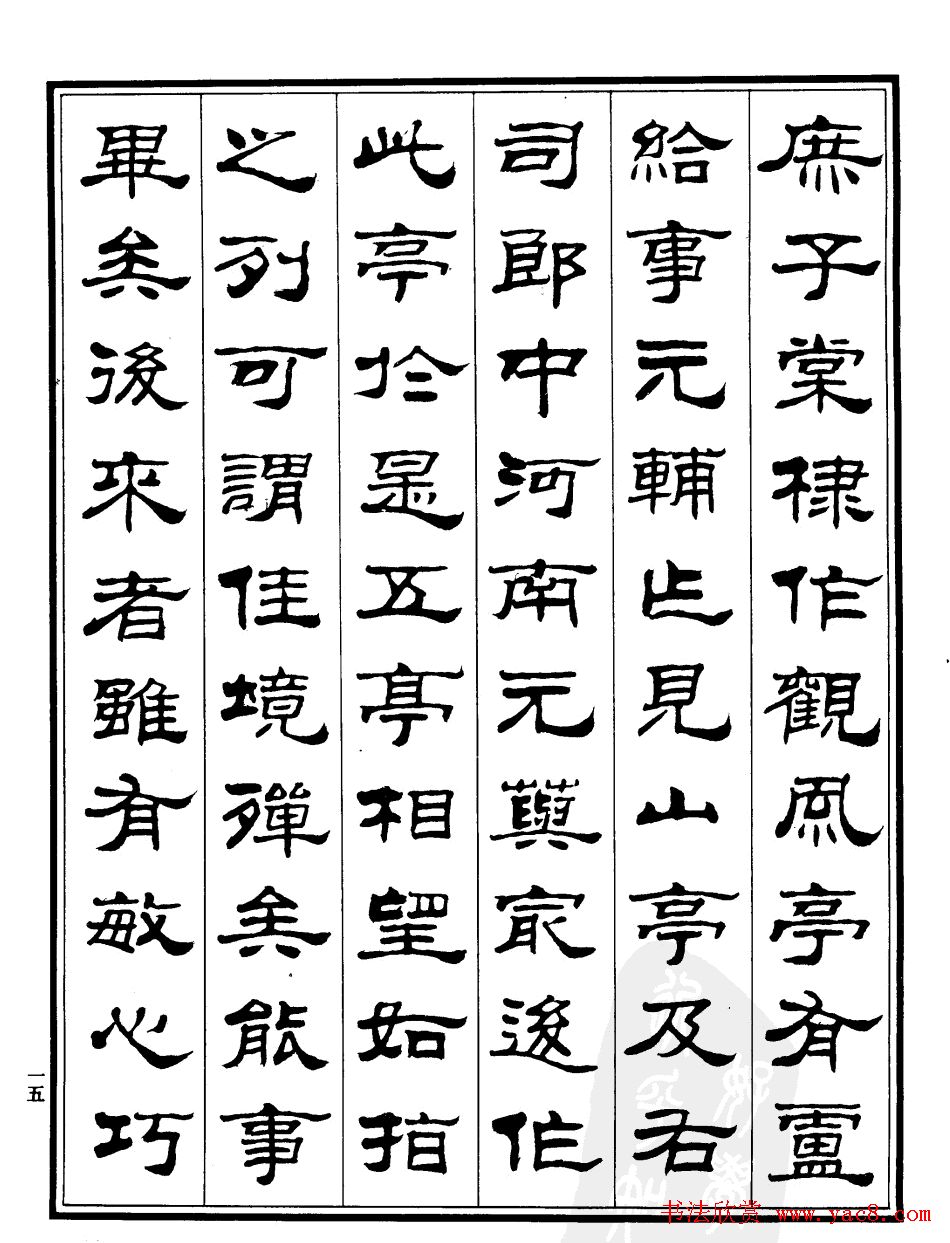 庶子棠棣作觀風亭有盧
給事元輔作見山亭及右
司郎中河南元藇最後作
此亭於是五亭相望如指
之列可謂佳境殫矣能事
畢矣後來者雖有敏心巧
一五
书法欣赏 www.yac8.com